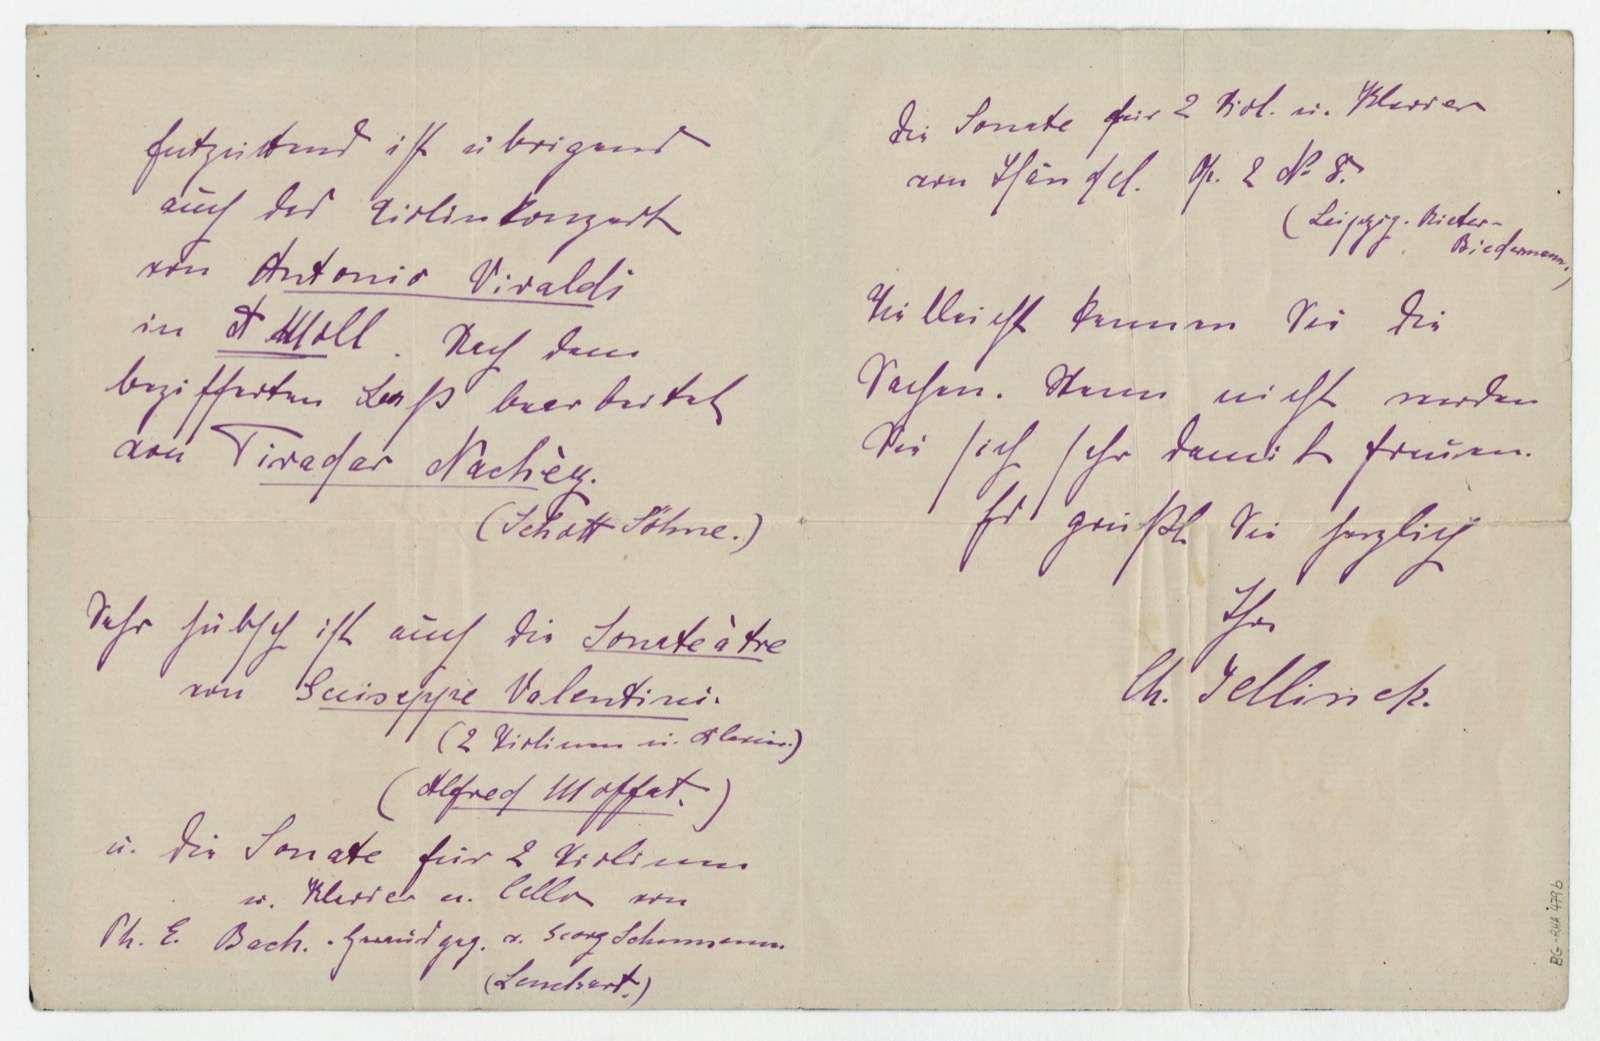 Entzückend ist übrigens
auch das Violinkonzert
von Antonio Vivaldi
in A Moll. Nach dem
bezifferten Baß bearbeitet
von Tivadar Nachèz.
(Schott Söhne.)
Sehr hübsch ist auch die Sonate à tre
von Guiseppe Valentini.
(2 Violinen u. Klavier.)
(Alfred Moffat.)
u. die Sonate für 2 Violinen
u. Klavier u. Cello von
Ph. E. Bach. herausgeg. v. Georg Schumann.
(Leuckart.)
die Sonate für 2 Viol. u. Klavier
von Händel. Op. 2 No 8.
(Leipzig. Rieter-
Biedermann.)
Vielleicht kennen Sie die
Sachen. Wenn nicht werden
Sie sich sehr damit freuen.
Es grüßt Sie herzlich
Ihr
Ch. Jellinek.
BG-RHA 479 b